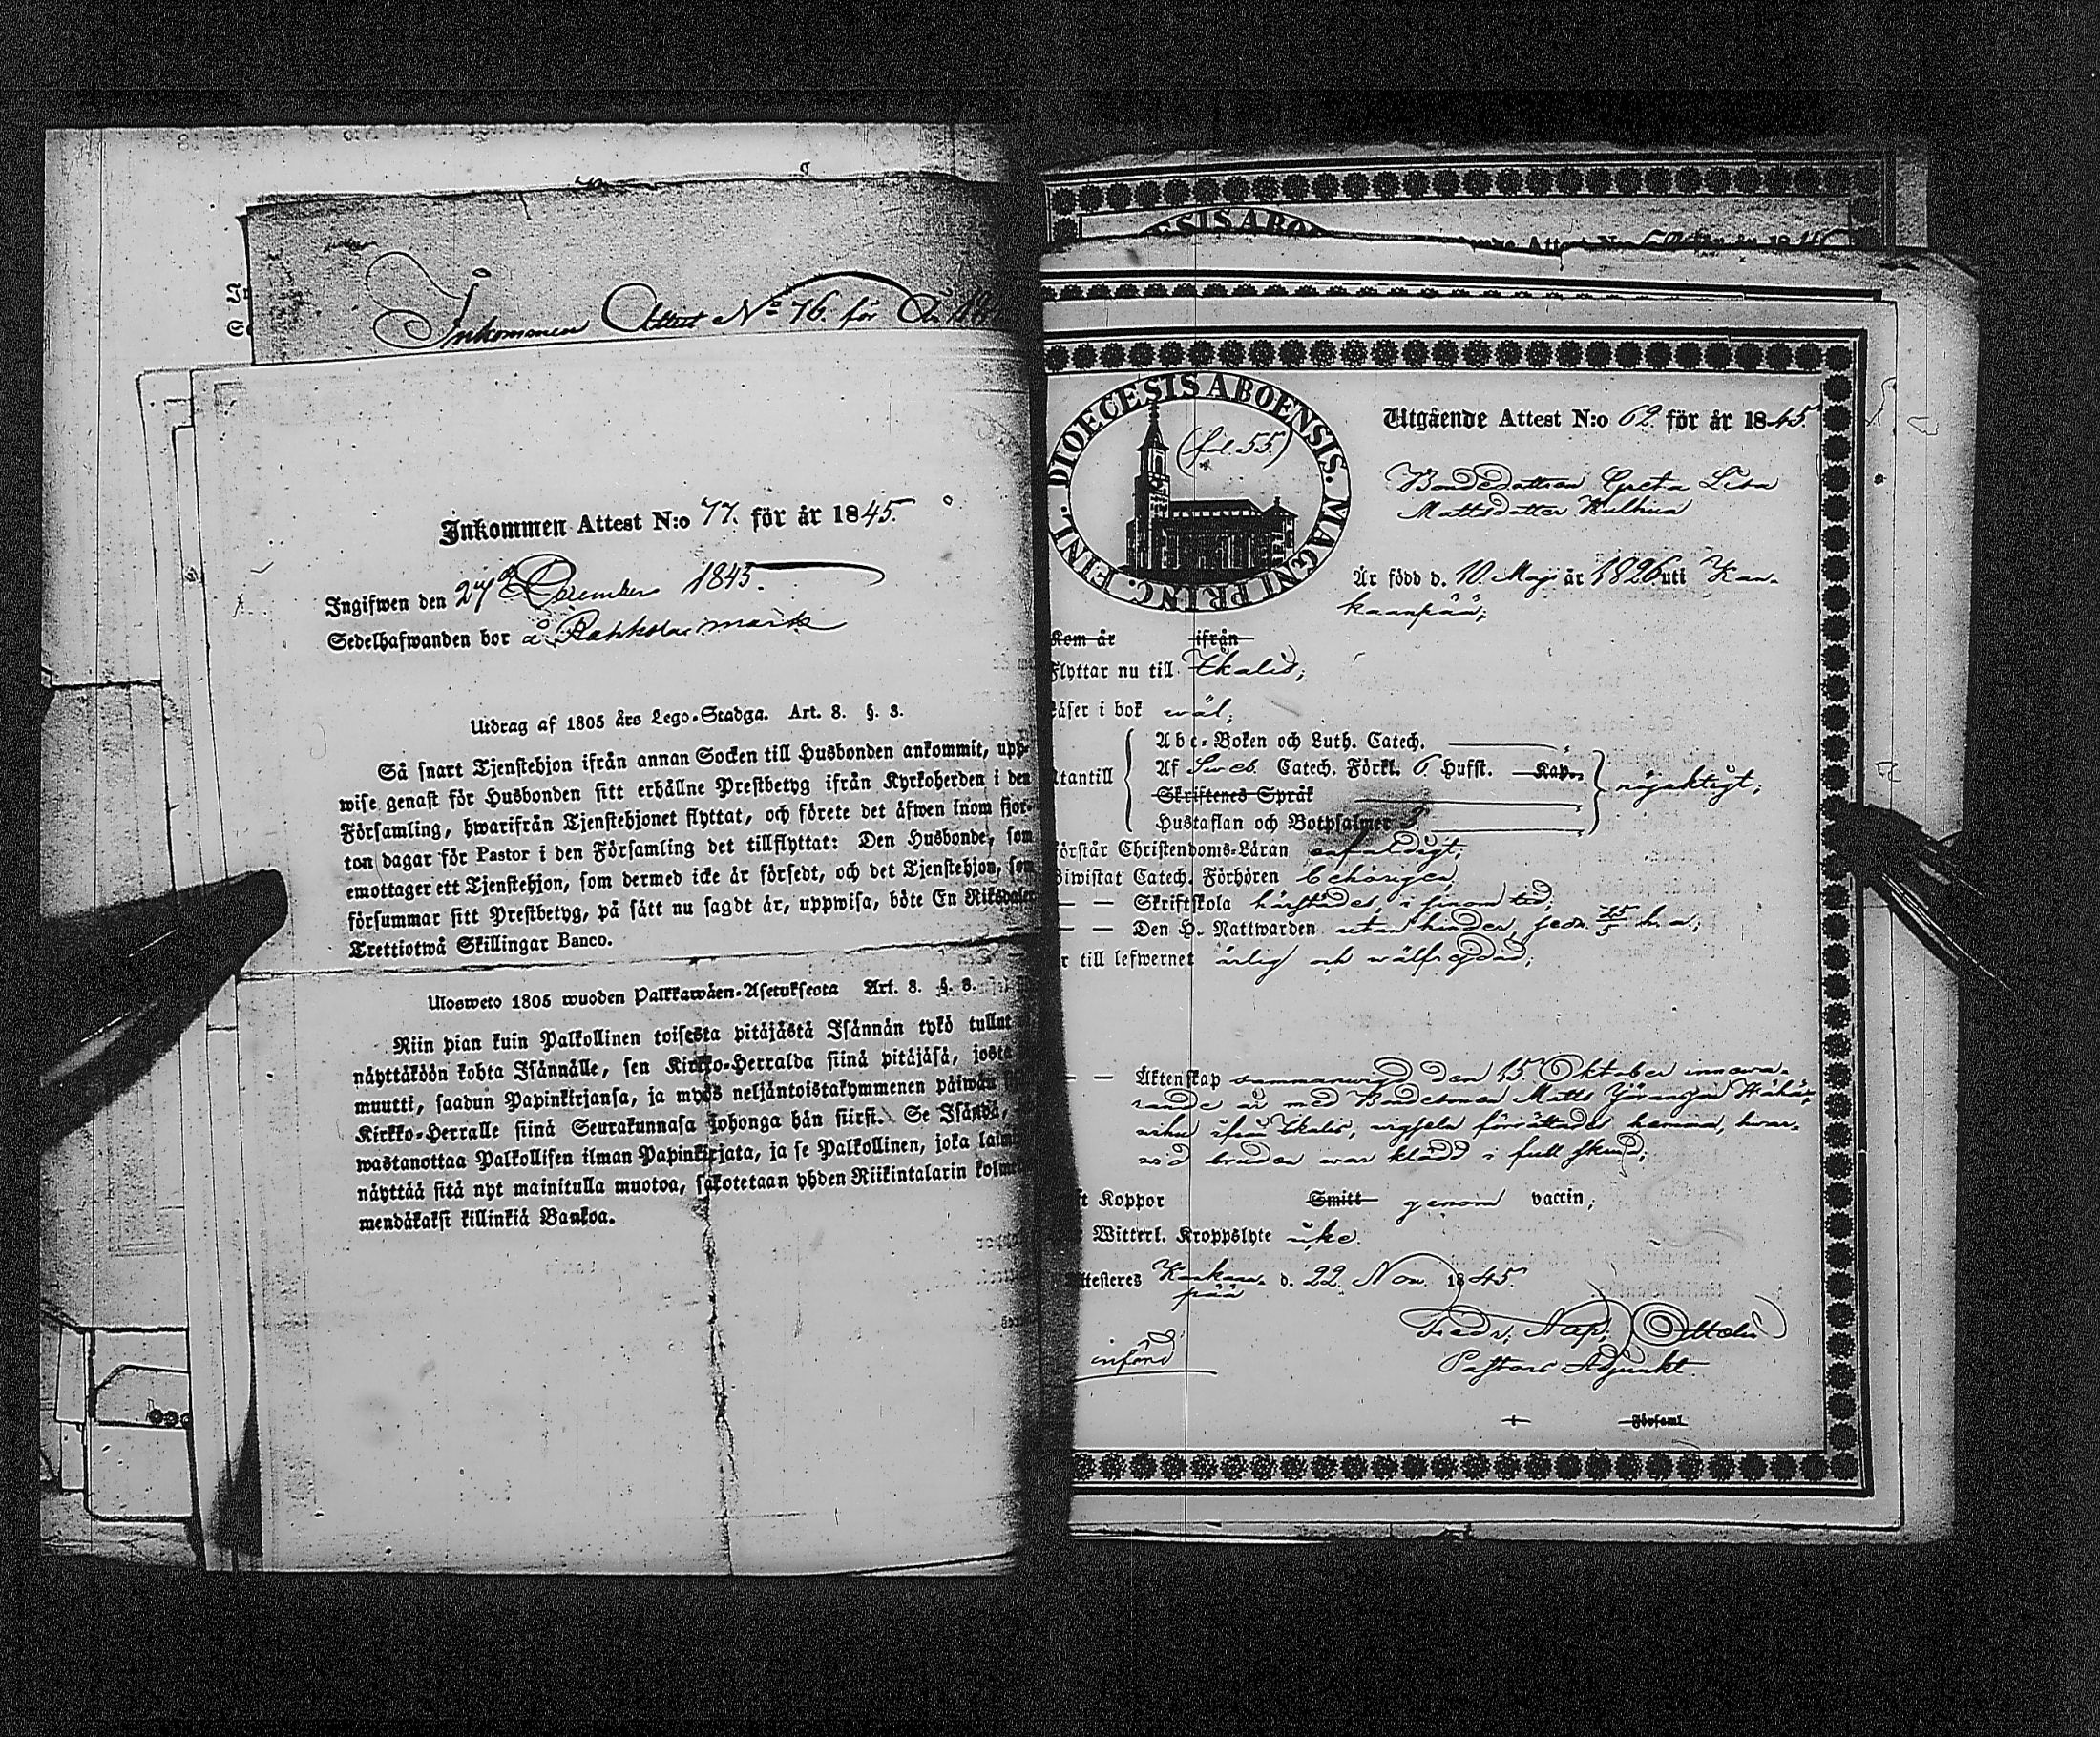 Inkommen Attest No 76. för År 184
Inkommen Attest N:o 77. för år 1845.
Ingifwen den 27de December 1845.
Sedelhafwanden bor å
Utdrag af 1805 års Lego-Stadga. Art. 8. §. 3.
Så snart Tjenstehjon ifrån annan Socken till Husbonden ankommit, upp-
wise genast för Husbonden sitt erhållne Prestbetyg ifrån Kyrkoherden i den
Församling, hwarifrån Tjenstehjonet flyttat, och förete det äfwen inom fjor-
ton dagar för Pastor i den Församling det tillflyttat: Den Husbonde, som
emottager ett Tjenstehjon, som dermed icke är försedt, och det Tjenstehjon, som
försummar sitt Prestbetyg, på sätt nu sagdt är, uppwisa, böte En Riksdaler
Trettiotwå Skillingar Banco.
Ulosweto 1805 wuoden Palkkawäen-Asetuksesta Art. 8. §. 3.
Niin pian kuin Palkollinen toisesta pitäjästä Isännän tykö tullut
näyttäköön kohta Isännälle, sen Kirkko-Herralda siinä pitäjäsä, josta
muutti, saadun Papinkirjansa, ja myös neljäntoistakymmenen päiwän
Kirkko-Herralle siinä Seurakunnasa johonga hän siirsi. Se Isändä,
wastanottaa Palkollisen ilman Papinkirjata, ja se Palkollinen, joka laim
näyttää sitä nyt mainitulla muotoa, sakotetaan yhden Riikintalarin kolme
mendäkaksi killinkiä Bankoa.
SIS ABO
DIOECESIS ABOENSIS. MAGNI PRINC. FINL.
(fol. 55.)
Utgående Attest N:o 62. för år 1845.
Bondedottren Greta Lisa
Mattsdotter Kulhua
Är född d. 10. Maji år 1826 uti Kan-
kaanpää;
Kom år ifrån
Flyttar nu till Ikalis;
Läser i bok wäl;
Abc-Boken och Luth. Catech.
Utantill Af Sweb. Catech. Förkl. 6. Hufst. Kap.
Skriftenes Språk nöjaktigt;
Hustaflan och Botpsalmer 3.
Förstår Christendoms-Läran enfaldigt;
Biwistat Catech. Förhören behörigen,
— — Skriftskola härstädes, i sinom tid;
— — Den H. Nattwarden utan hinder, sedn. 25/5 h. a.;
är till lefwernet ärlig och wälfrejdad;
— — Äktenskap sammanwigd den 15. Oktober innewa-
rande år med Bondesonen Matts Göransson
ifrån Ikalis, wigseln förrättades hemma, hwar-
wid bruden war klädd i full skrud;
ft Koppor Smitt genom vaccin;
Witterl. Kroppslyte icke.
Attesteras Kankaan-
pää d. 22. Nov. 1845.
Fredr. Nap.
Pastors Adjunkt.
införd
Församl.